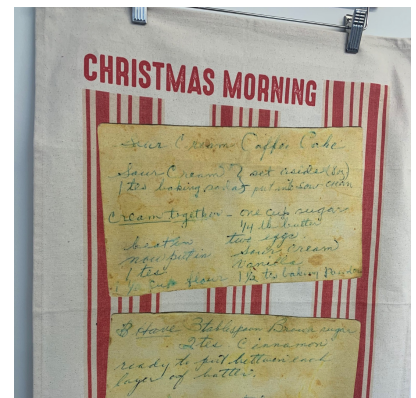 CHRISTMAS MORNING
Sour Cream Coffee Cake
Sour Cream & set aside
1 tes baking soda put in sour cream
Cream together - one cup sugar
1/4 lb butter
beaten two eggs
now put in sour cream
1 tes vanilla
cup flour 1 1/2 tes baking powder
Have 3 tablespoon Brown sugar
2 tes Cinnamon
ready to put between each
layer of batter.